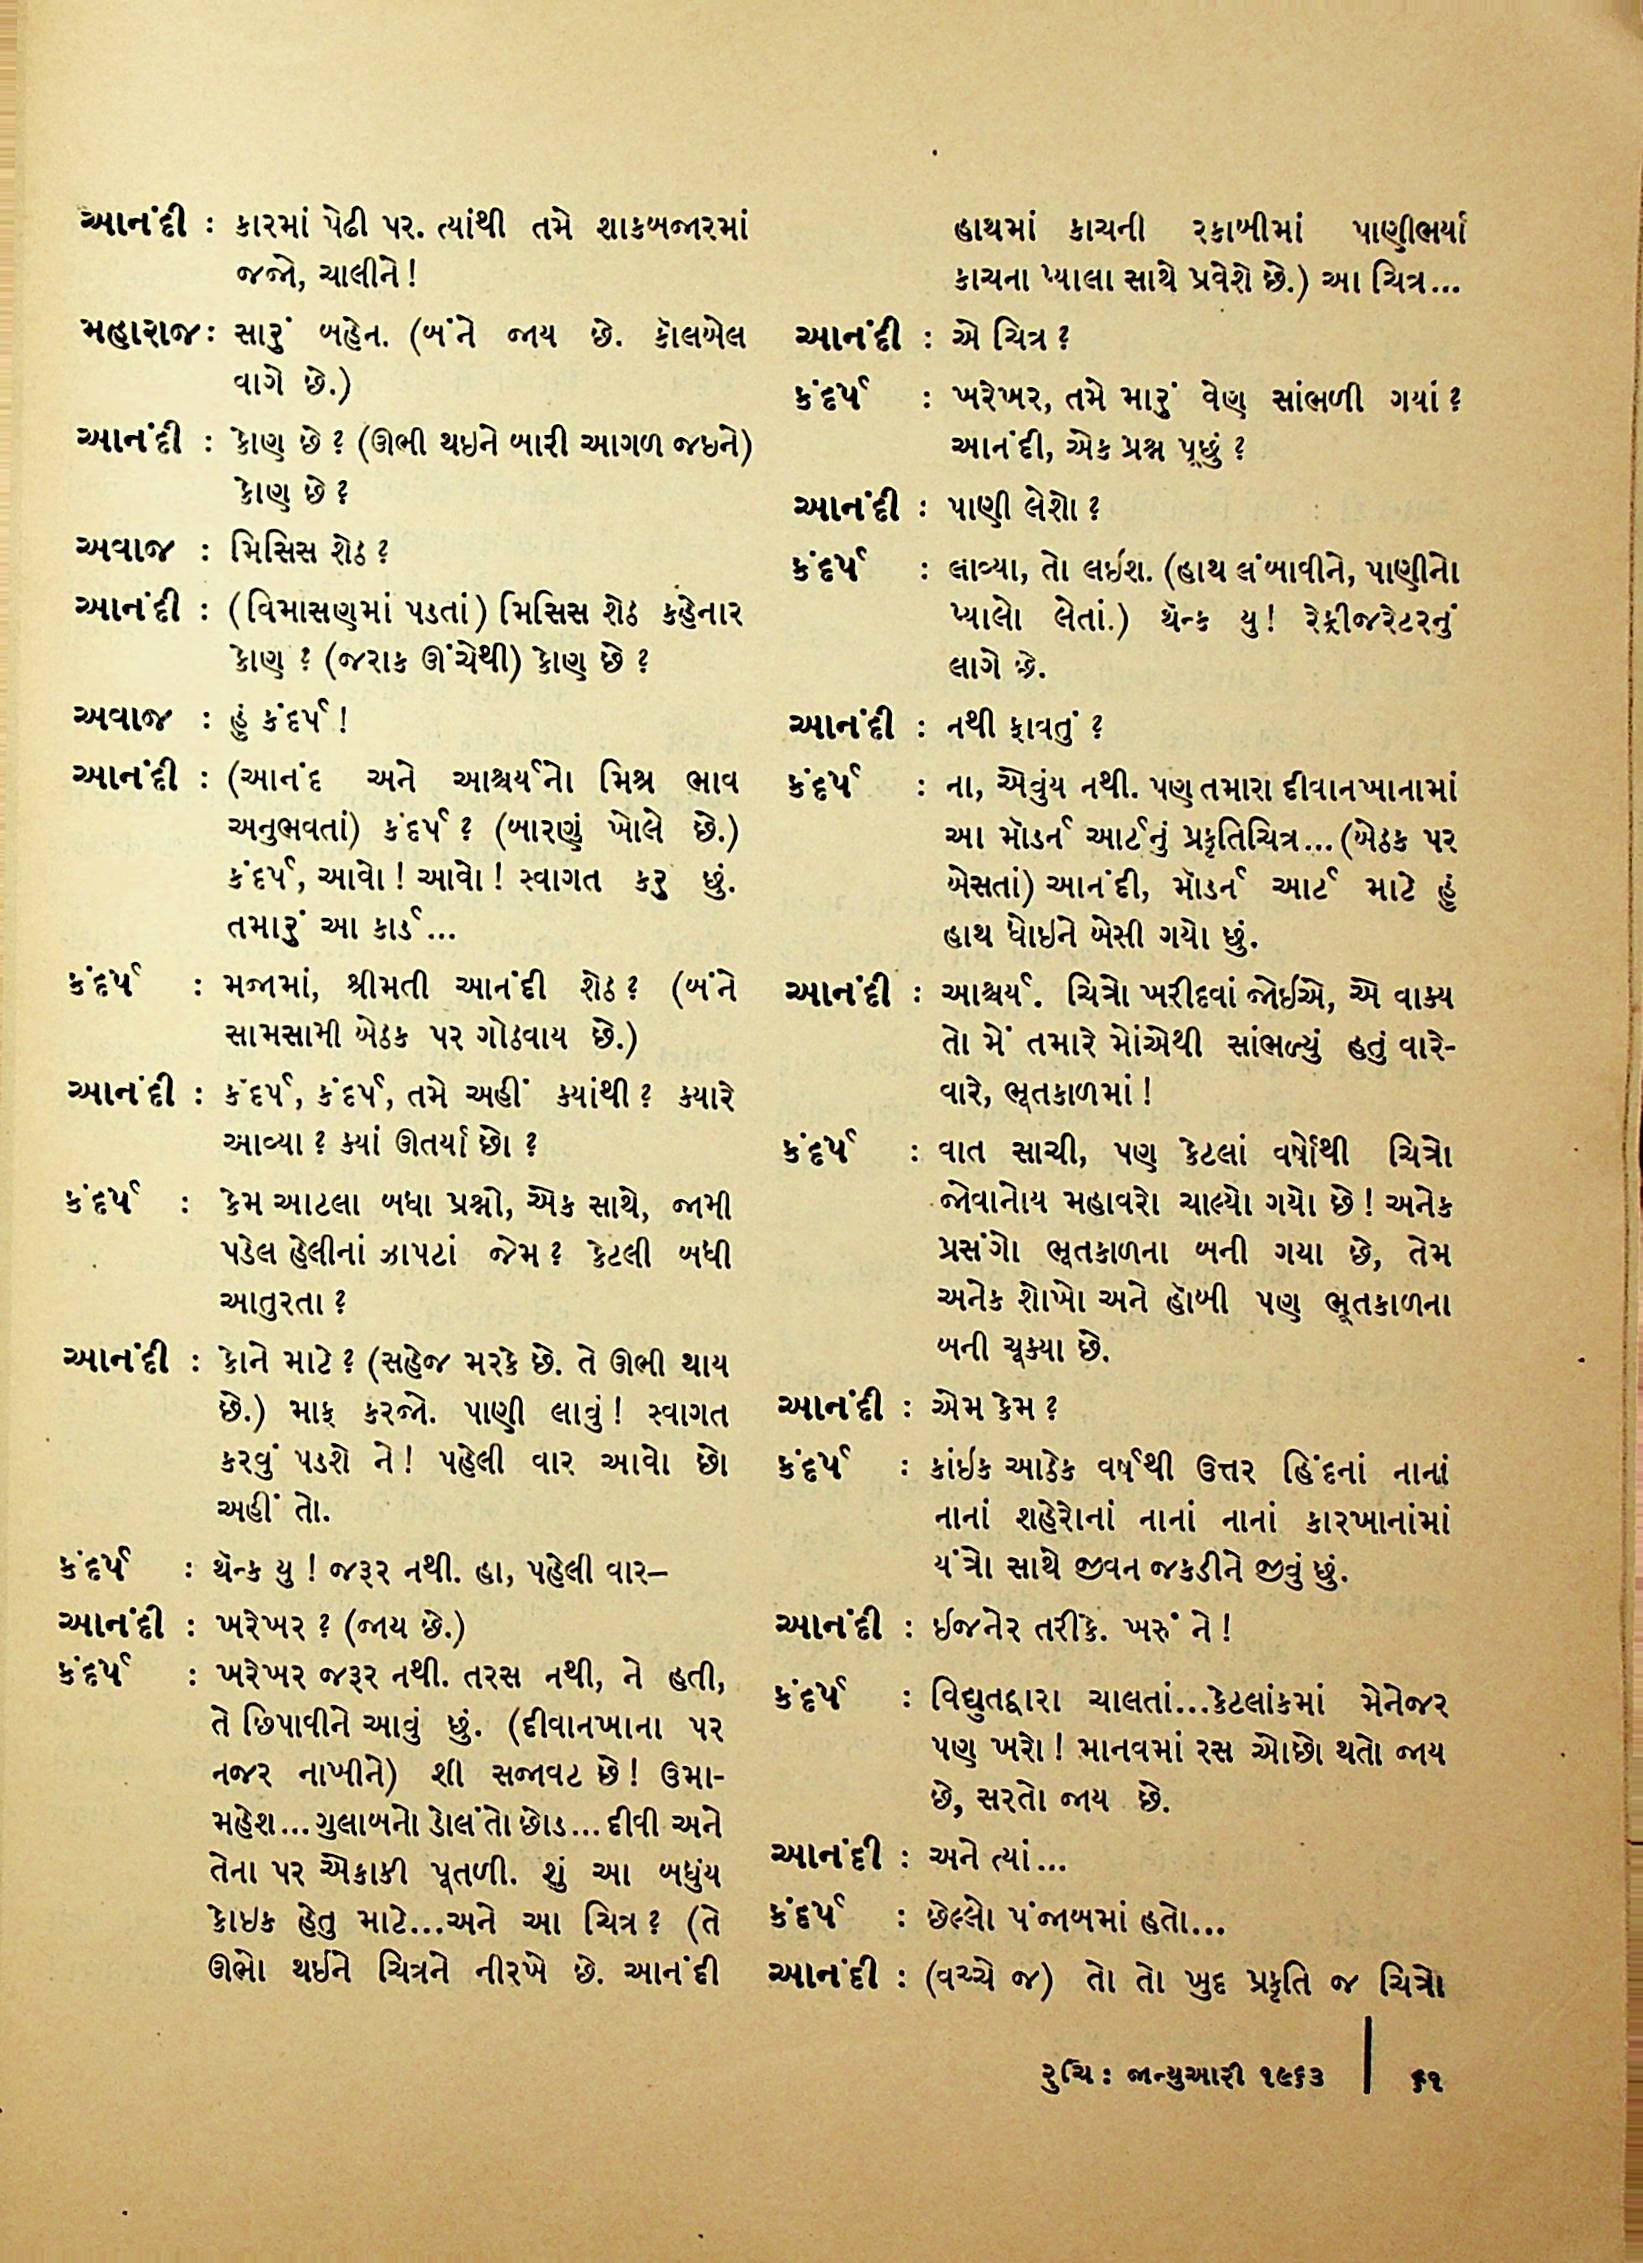 આનંદી : કારમાં પેઢી પર. ત્યાંથી તમે શાકબજારમાં
જજો, ચાલીને !
મહારાજ : સારું બહેન. (બંને જાય છે. કૉલબેલ
વાગે છે.)
આનંદી : કોણ છે ? (ઊભી થઇને બારી આગળ જઇને)
કોણ છે ?
અવાજ : મિસિસ શેઠ ?
આનંદી : (વિમાસણમાં પડતાં) મિસિસ શેઠ કહેનાર
કોણ ? (જરાક ઊંચેથી) કોણ છે ?
અવાજ : હું કંદર્પ !
આનંદી : (આનંદ અને આશ્ચર્યનો મિશ્ર ભાવ
અનુભવતાં) કંદર્પ ? (બારણું ખોલે છે.)
કંદર્પ, આવો ! આવો ! સ્વાગત કરુ છું.
તમારું આ કાર્ડ...
કંદર્પ : મજામાં, શ્રીમતી આનંદી શેઠ ? (બંને
સામસામી બેઠક પર ગોઠવાય છે.)
આનંદી : કંદર્પ, કંદર્પ, તમે અહીં ક્યાંથી ? ક્યારે
આવ્યા ? ક્યાં ઊતર્યા છો ?
કંદર્પ : કેમ આટલા બધા પ્રશ્નો, એક સાથે, જામી
પડેલ હેલીનાં ઝાપટાં જેમ ? કેટલી બધી
આતુરતા ?
આનંદી : કોને માટે ? (સહેજ મરકે છે. તે ઊભી થાય
છે.) માફ કરજો. પાણી લાવું ! સ્વાગત
કરવું પડશે ને ! પહેલી વાર આવો છો
અહીં તો.
કંદર્પ : થૅન્ક યુ ! જરૂર નથી. હા, પહેલી વાર–
આનંદી : ખરેખર ? (જાય છે.)
કંદર્પ : ખરેખર જરૂર નથી. તરસ નથી, ને હતી,
તે છિપાવીને આવું છું. (દીવાનખાના પર
નજર નાખીને) શી સજાવટ છે ! ઉમા-
મહેશ...ગુલાબનો ડોલંતો છોડ...દીવી અને
તેના પર એકાકી પૂતળી. શું આ બધુંય
કોઇક હેતુ માટે...અને આ ચિત્ર ? (તે
ઊભો થઈને ચિત્રને નીરખે છે. આનંદી
હાથમાં કાચની રકાબીમાં પાણીભર્યા
કાચના પ્યાલા સાથે પ્રવેશે છે.) આ ચિત્ર...
આનંદી : એ ચિત્ર ?
કંદર્પ : ખરેખર, તમે મારું વેણ સાંભળી ગયાં ?
આનંદી, એક પ્રશ્ન પૂછું ?
આનંદી : પાણી લેશો ?
કંદર્પ : લાવ્યા, તો લઇશ. (હાથ લંબાવીને, પાણીનો
પ્યાલો લેતાં.) થૅન્ક યુ ! રેફ્રીજરેટરનું
લાગે છે.
આનંદી : નથી ફાવતું ?
કંદર્પ : ના, એવુંય નથી. પણ તમારા દીવાનખાનામાં
આ મૉડર્ન આર્ટનું પ્રકૃતિચિત્ર...(બેઠક પર
બેસતાં) આનંદી, મૉડર્ન આર્ટ માટે હું
હાથ ધોઇને બેસી ગયો છું.
આનંદી : આશ્ચર્ય. ચિત્રો ખરીદવાં જોઈએ, એ વાક્ય
તો મેં તમારે મોંએથી સાંભળ્યું હતું વારે-
વારે, ભૂતકાળમાં !
કંદર્પ : વાત સાચી, પણ કેટલાં વર્ષોથી ચિત્રો
જોવાનોય મહાવરો ચાલ્યો ગયો છે ! અનેક
પ્રસંગો ભૂતકાળના બની ગયા છે, તેમ
અનેક શોખો અને હૉબી પણ ભૂતકાળના
બની ચૂક્યા છે.
આનંદી : એમ કેમ ?
કંદર્પ : કાંઇક આઠેક વર્ષથી ઉત્તર હિંદનાં નાનાં
નાનાં શહેરોનાં નાનાં નાનાં કારખાનાંમાં
યંત્રો સાથે જીવન જકડીને જીવું છું.
આનંદી : ઇજનેર તરીકે. ખરું ને !
કંદર્પ : વિદ્યુતદ્વારા ચાલતાં...કેટલાંકમાં મેનેજર
પણ ખરો ! માનવમાં રસ ઓછો થતો જાય
છે, સરતો જાય છે.
આનંદી : અને ત્યાં...
કંદર્પ : છેલ્લો પંજાબમાં હતો...
આનંદી : (વચ્ચે જ) તો તો ખુદ પ્રકૃતિ જ ચિત્રો
રુચિ : જાન્યુઆરી ૧૯૬૩ | ૬૧